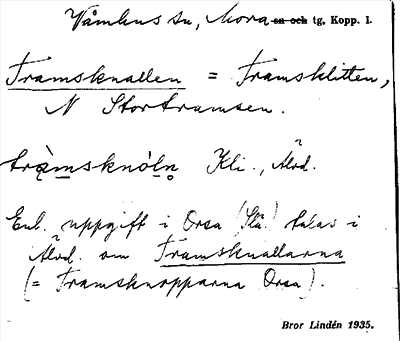 Våmhus sn, Mora sn och tg, Kopp. l.
Tramsknallen = Tramsklitten,
N Stortramsen.
tràmsknὀln Kli., Älvd.
Enl. uppgift i Orsa (Slä.) talas i
Älvd. om Tramsknallarna
(= Tramsknopparna Orsa).
Bror Lindén 1935.